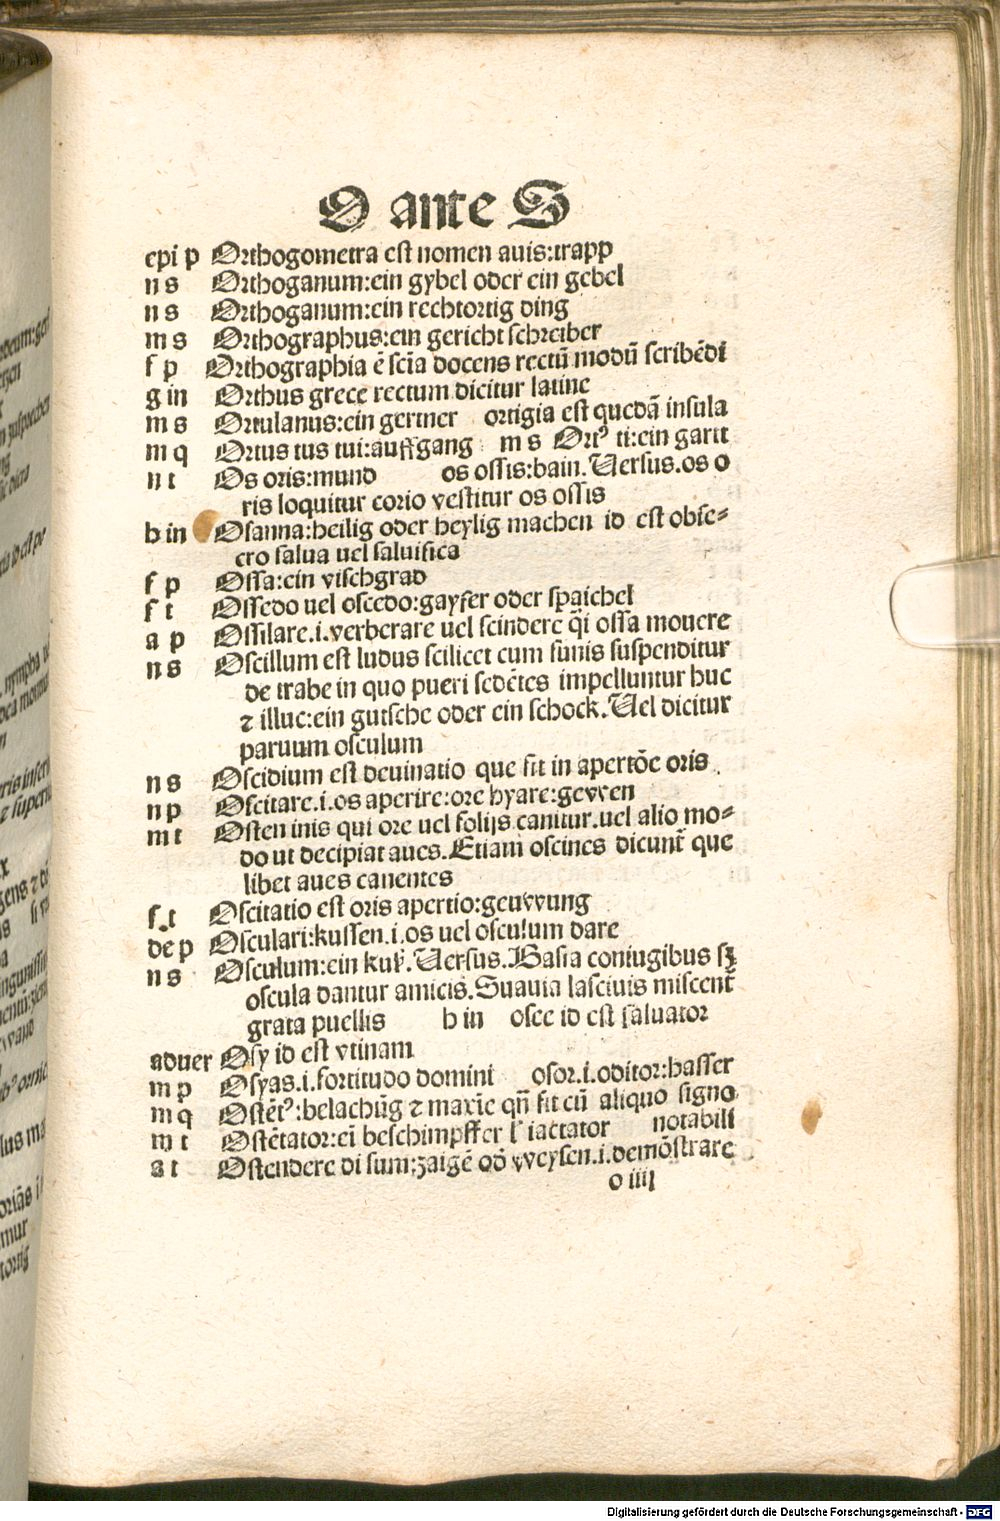 O ante S
epi p Orthogometra est nomen auis:trapp
n s Orthoganum:ein gybel oder ein gebel
n s Orthoganum:ein rechtortig ding
m s Orthographus:ein gericht schreiber
f p Orthographia ē scīa docens rectū modū scribēdi
g in Orthus grece rectum dicitur latine
m s Ortulanus:ein gertner ortigia est quedā insula
m q Ortus tus tui:auffgang m s Ort⁹ ti:ein gartt
n t Os oris:mund os ossis:bain.Uersus.os o
ris loquitur corio vestitur os ossis
h in Osanna:heilig oder heylig machen id est obse-
cro salua uel saluifica
f p Ossa:ein vischgrad
f t Ossedo uel oscedo:gayfer oder spaichel
a p Ossilare.i.verberare uel scindere q̄i ossa mouere
n s Oscillum est ludus scilicet cum funis suspenditur
de trabe in quo pueri sedētes impelluntur huc
⁊ illuc:ein gutsche oder ein schock.Uel dicitur
paruum osculum
n s Oscidium est deuinatio que fit in apertōe oris
n p Oscitare.i.os aperire:ore hyare:gevven
m t Osten inis qui ore uel folijs canitur.uel alio mo-
do ut decipiat aues.Etiam oscines dicunt᷑ que
libet aues canentes
f.t Oscitatio est oris apertio:geuvvung
de p Osculari:kussen.i.os uel osculum dare
n s Osculum:ein kuß.Uersus.Basia coniugibus sꝫ
oscula dantur amicis.Suauia lasciuis miscent᷑
grata puellis h in osee id est saluator
aduer Osy id est vtinam
m p Osyas.i.fortitudo domini osor.i.oditor:hasser
m q Ostēt⁹:belachūg ⁊ maxīe qn̄ fit cū aliquo signo
m t Ostētator:eī beschimpffer ł iactator notabili
a t Ostendere di sum:zaigē od̄ vveysen.i.demōstrare
o iiii
Digitalisierung gefördert durch die Deutsche Forschungsgemeinschaft - DFG